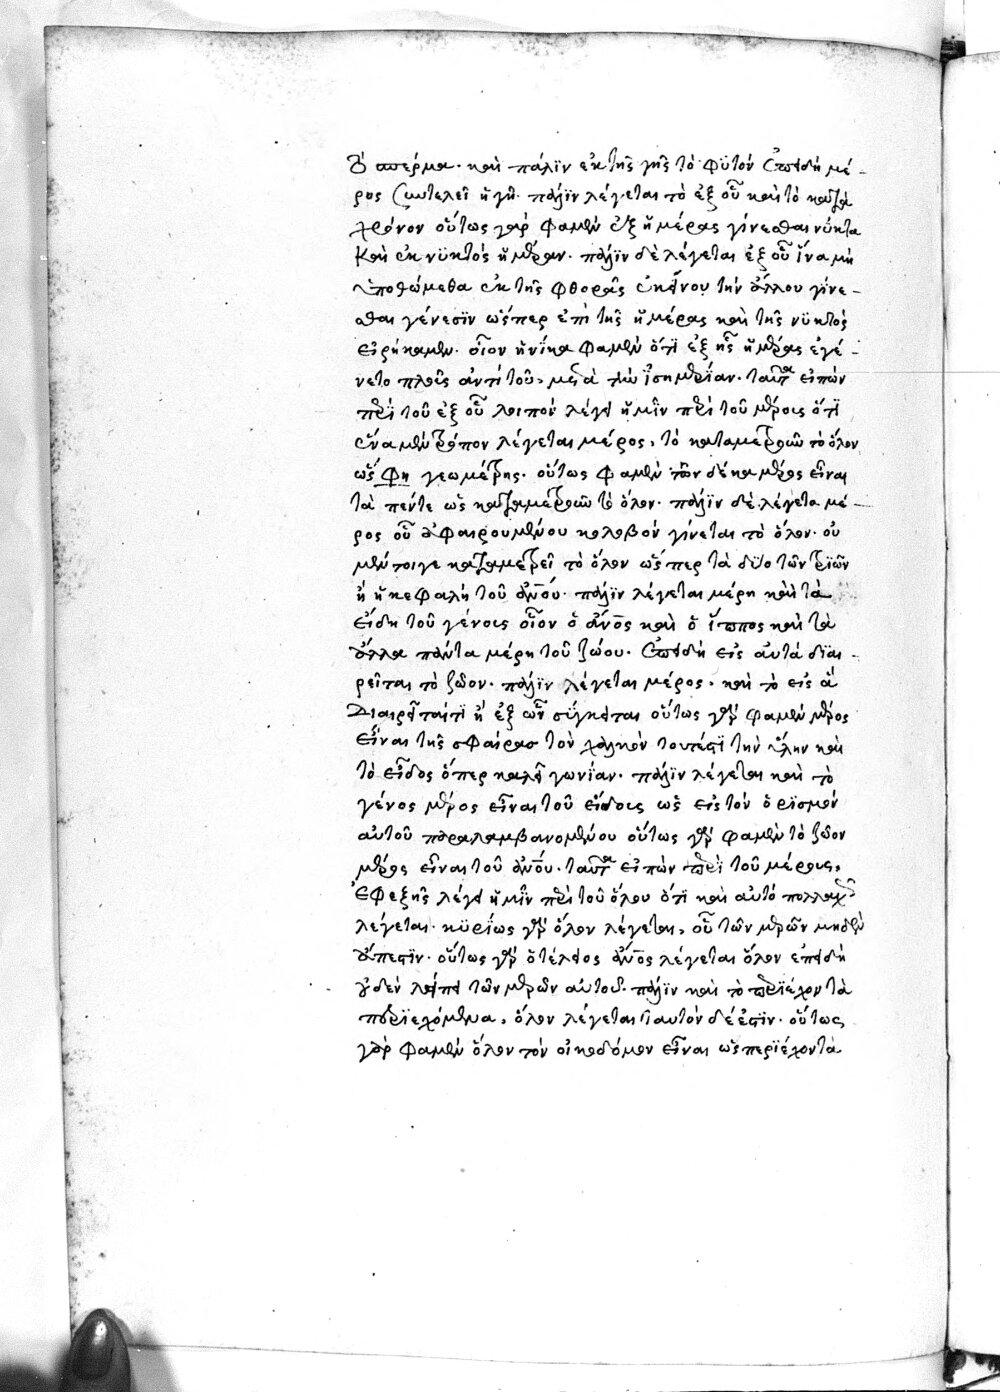 τὸ σπέρμα· καὶ πάλιν ἐκ τῆς γῆς τὸ φϋτόν ἐπειδὴ μέ-
ρος συντελεῖ ἡ γῆ· πάλϊν λέγεται τὸ ἐξ οὗ καὶ τὸ κατὰ
χρόνον οὕτως γὰρ φαμὲν ἐξ ἡμέρας γίνεσθαι νύκτα
καὶ ἐκ νϋκτὸς ἡμέραν· πάλϊν δὲ λέγεται ἐξ οὗ ἵνα μὴ
ὑποθώμεθα ἐκ τῆς φθορᾶς ἐκείνου τὴν ἄλλου γίνε-
σθαι γένεσϊν ὥσπερ ἐπὶ τῆς ἡμέρας καὶ τῆς νϋκτὸς
εἰρήκαμεν· οἷον ἡνίκα φαμὲν ὅτϊ ἐξ ἧς ἡμέρας ἐγέ-
νετο πλοῦς ἀντὶ τοῦ, μετὰ τὴν ἰσημερίαν· ταῦτα εἰπὼν
περὶ τοῦ ἐξ οὗ λοιπὸν λέγει ἡμῖν περὶ τοῦ μέρους ὅτϊ
ἕνα μὲν τρόπον λέγεται μέρος, τὸ καταμετροῦν τὸ ὅλον
ὥς φη γεωμέτρης· οὕτως φαμὲν τῶν δέκα μέρος εἶναι
τὰ πέντε ὡς καταμετροῦν τὸ ὅλον· πάλϊν δὲ λέγεται μέ-
ρος οὗ ἀφαιρουμένου κολοβὸν γίνεται τὸ ὅλον· οὐ
μέντοιγε καταμετρεῖ τὸ ὅλον ὥσπερ τὰ δύο τῶν τριῶν
ἢ ἡ κεφαλὴ τοῦ ἀνου· πάλϊν λέγεται μέρη καὶ τὰ
εἴδη τοῦ γένους οἷον ὁ ἄνος καὶ ὁ ἵππος καὶ τὰ
ἄλλα πάντα μέρη τοῦ ζώου· ἐπειδὴ εἰς αὐτὰ δϊαι-
ρεῖται τὸ ζῶον· πάλϊν λέγεται μέρος, καὶ τὸ εἰς ἃ
διαιρεῖται τϊ ἢ ἐξ ὧν σύγκειται οὕτως γὰρ φαμὲν μέρος
εἶναι τῆς σφαίρας τὸν χαλκὸν τουτέστι τὴν ὕλην καὶ
τὸ εἶδος ὅπερ καλεῖ γωνίαν· πάλϊν λέγεται καὶ τὸ
γένος μέρος εἶναι τοῦ εἴδους ὡς εἰς τὸν ὁρϊσμὸν
αὐτοῦ παραλαμβανομένου οὕτως γὰρ φαμὲν τὸ ζῶον
μέρος εἶναι τοῦ ἀνου· ταῦτα εἰπὼν περὶ τοῦ μέρους,
ἐφεξῆς λέγει ἡμῖν περὶ τοῦ ὅλου ὅτϊ καὶ αὐτὸ πολλαχῶς
λέγεται· κϋρίως γὰρ ὅλον λέγεται, οὗ τῶν μερῶν μηδὲν
ἄπεστϊν· οὕτως γὰρ ὁ τέλειος ἄνος λέγεται ὅλον ἐπειδὴ
οὐδὲν λείπει τῶν μερῶν αὐτοῦ· πάλϊν καὶ τὸ περϊέχον τὰ
περϊεχόμενα, ὅλον λέγεται ταυτὸν δέ ἐστϊν· οὕτως
γὰρ φαμὲν ὅλον τὸν οἰκοδόμον εἶναι ὡς περϊέχοντα